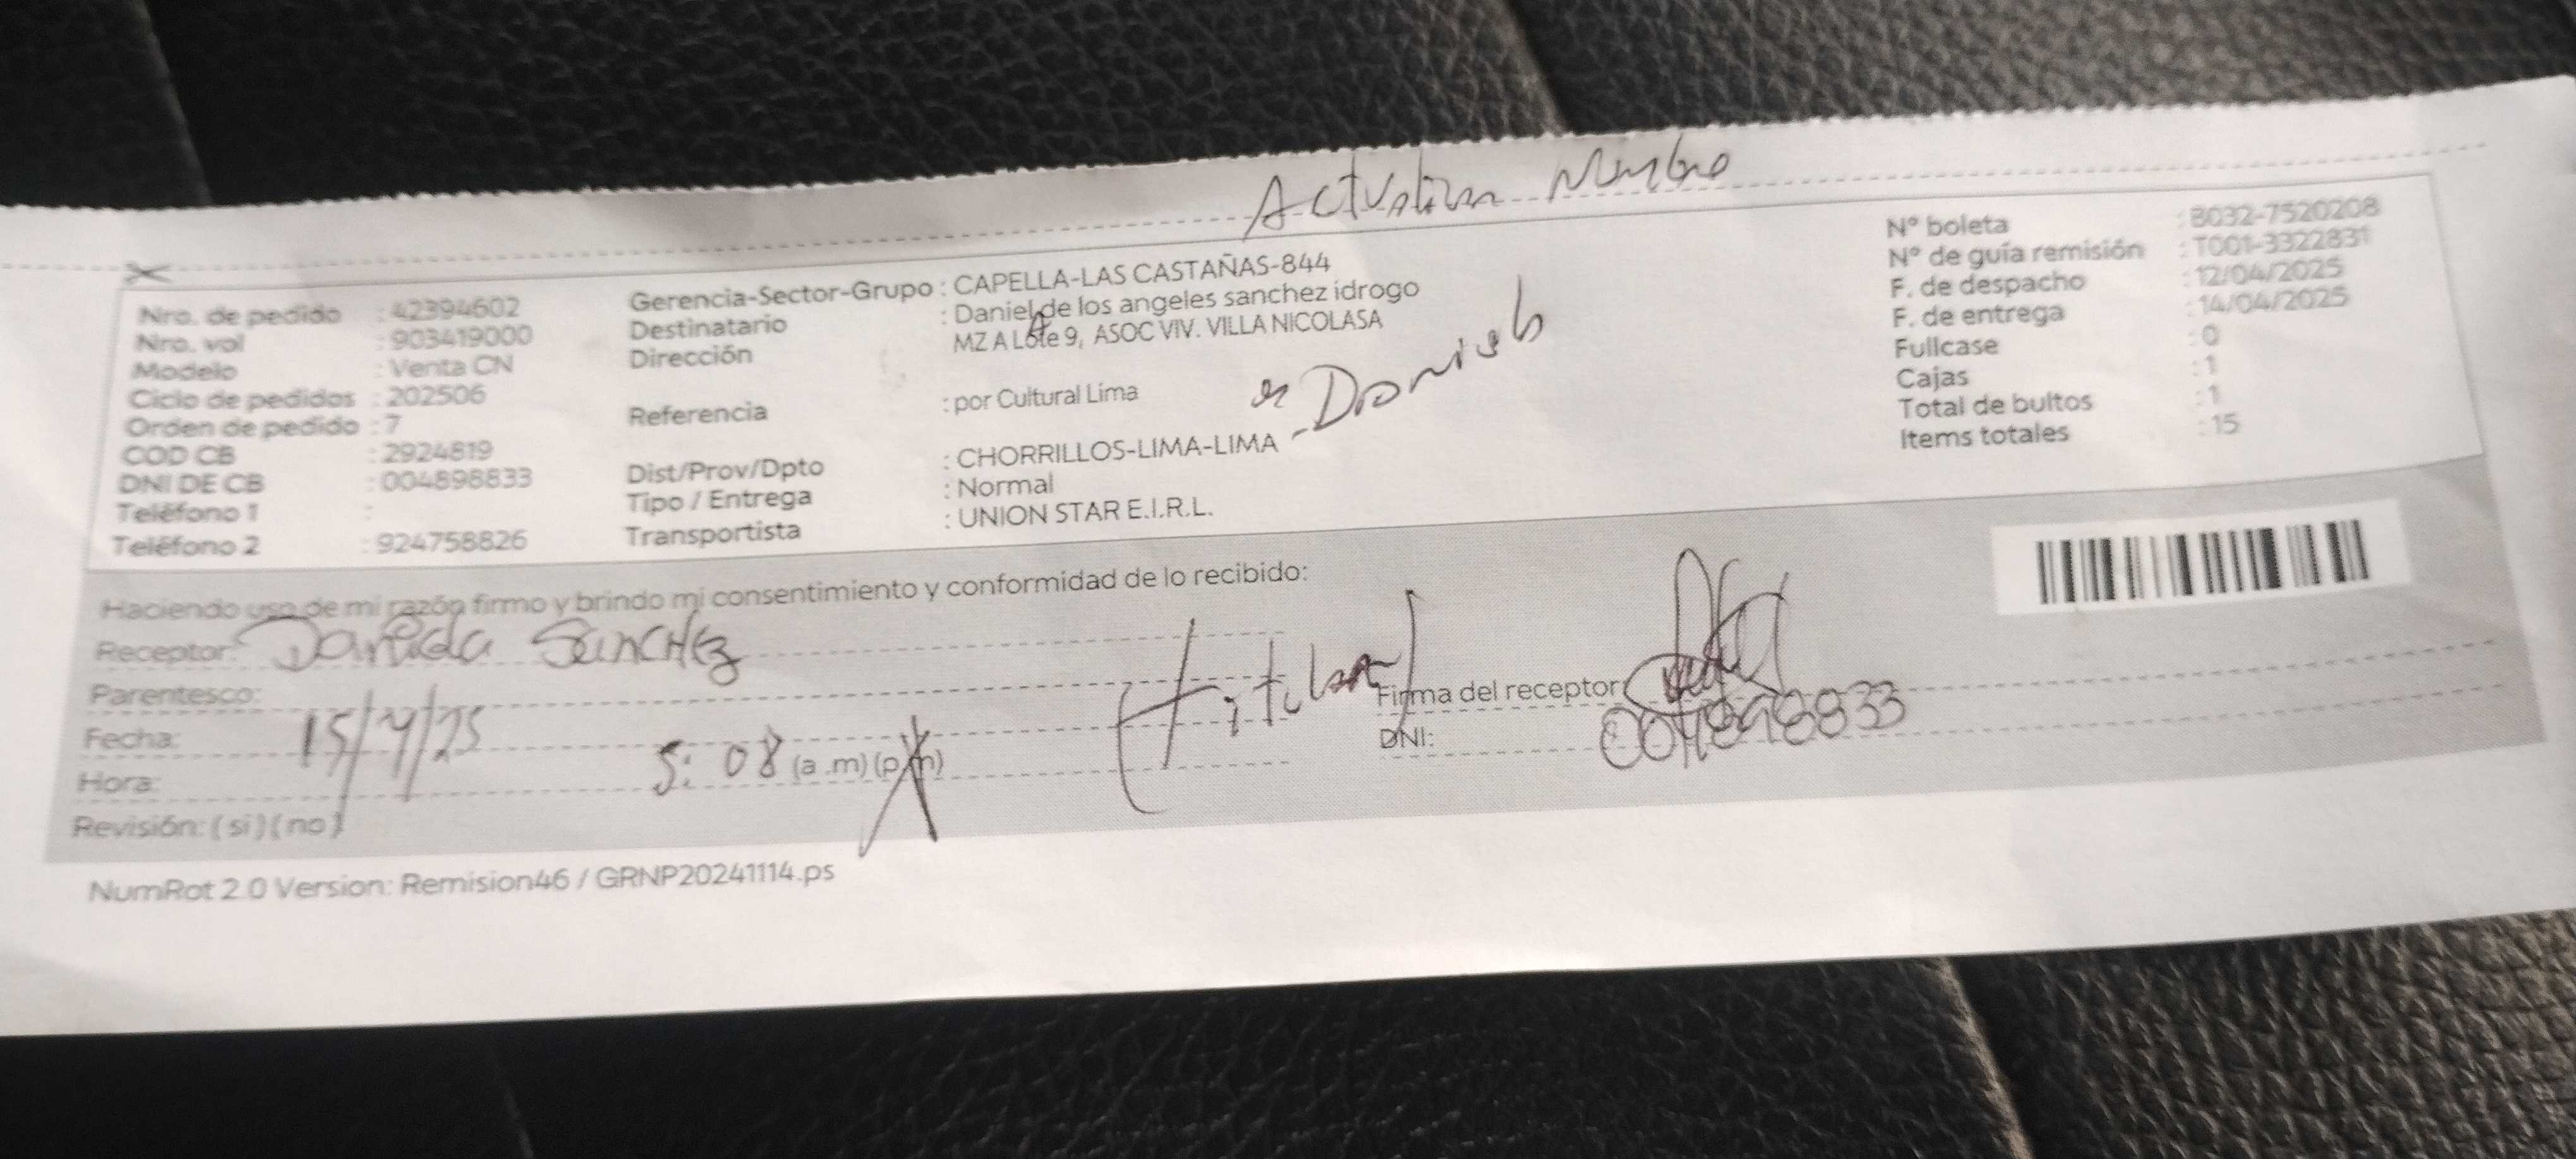 Nro. de pedido : 42394602
Nro. vol : 903419000
Modelo : Venta CN
Ciclo de pedidos : 202506
Orden de pedido : 7
COD CB : 2924819
DNI DE CB : 004898833
Teléfono 1 :
Teléfono 2 : 924758826
Gerencia-Sector-Grupo : CAPELLA-LAS CASTAÑAS-844
Destinatario : Daniel de los angeles sanchez idrogo
Dirección MZ A Lote 9, ASOC VIV. VILLA NICOLASA
Referencia : por Cultural Lima
Dist/Prov/Dpto : CHORRILLOS-LIMA-LIMA
Tipo / Entrega : Normal
Transportista : UNION STAR E.I.R.L.
N° boleta : B032-7520208
N° de guía remisión : T001-3322831
F. de despacho : 12/04/2025
F. de entrega : 14/04/2025
Fullcase : 0
Cajas : 1
Total de bultos : 1
Items totales : 15
Haciendo uso de mi razón firmo y brindo mi consentimiento y conformidad de lo recibido:
Receptor: Sanchez
Parentesco:
Fecha: 15/4/25
Hora: 5:08 (a .m) (p.m)
Revisión: (si) (no)
Firma del receptor:
DNI: 004898833
NumRot 2.0 Version: Remision46 / GRNP20241114.ps